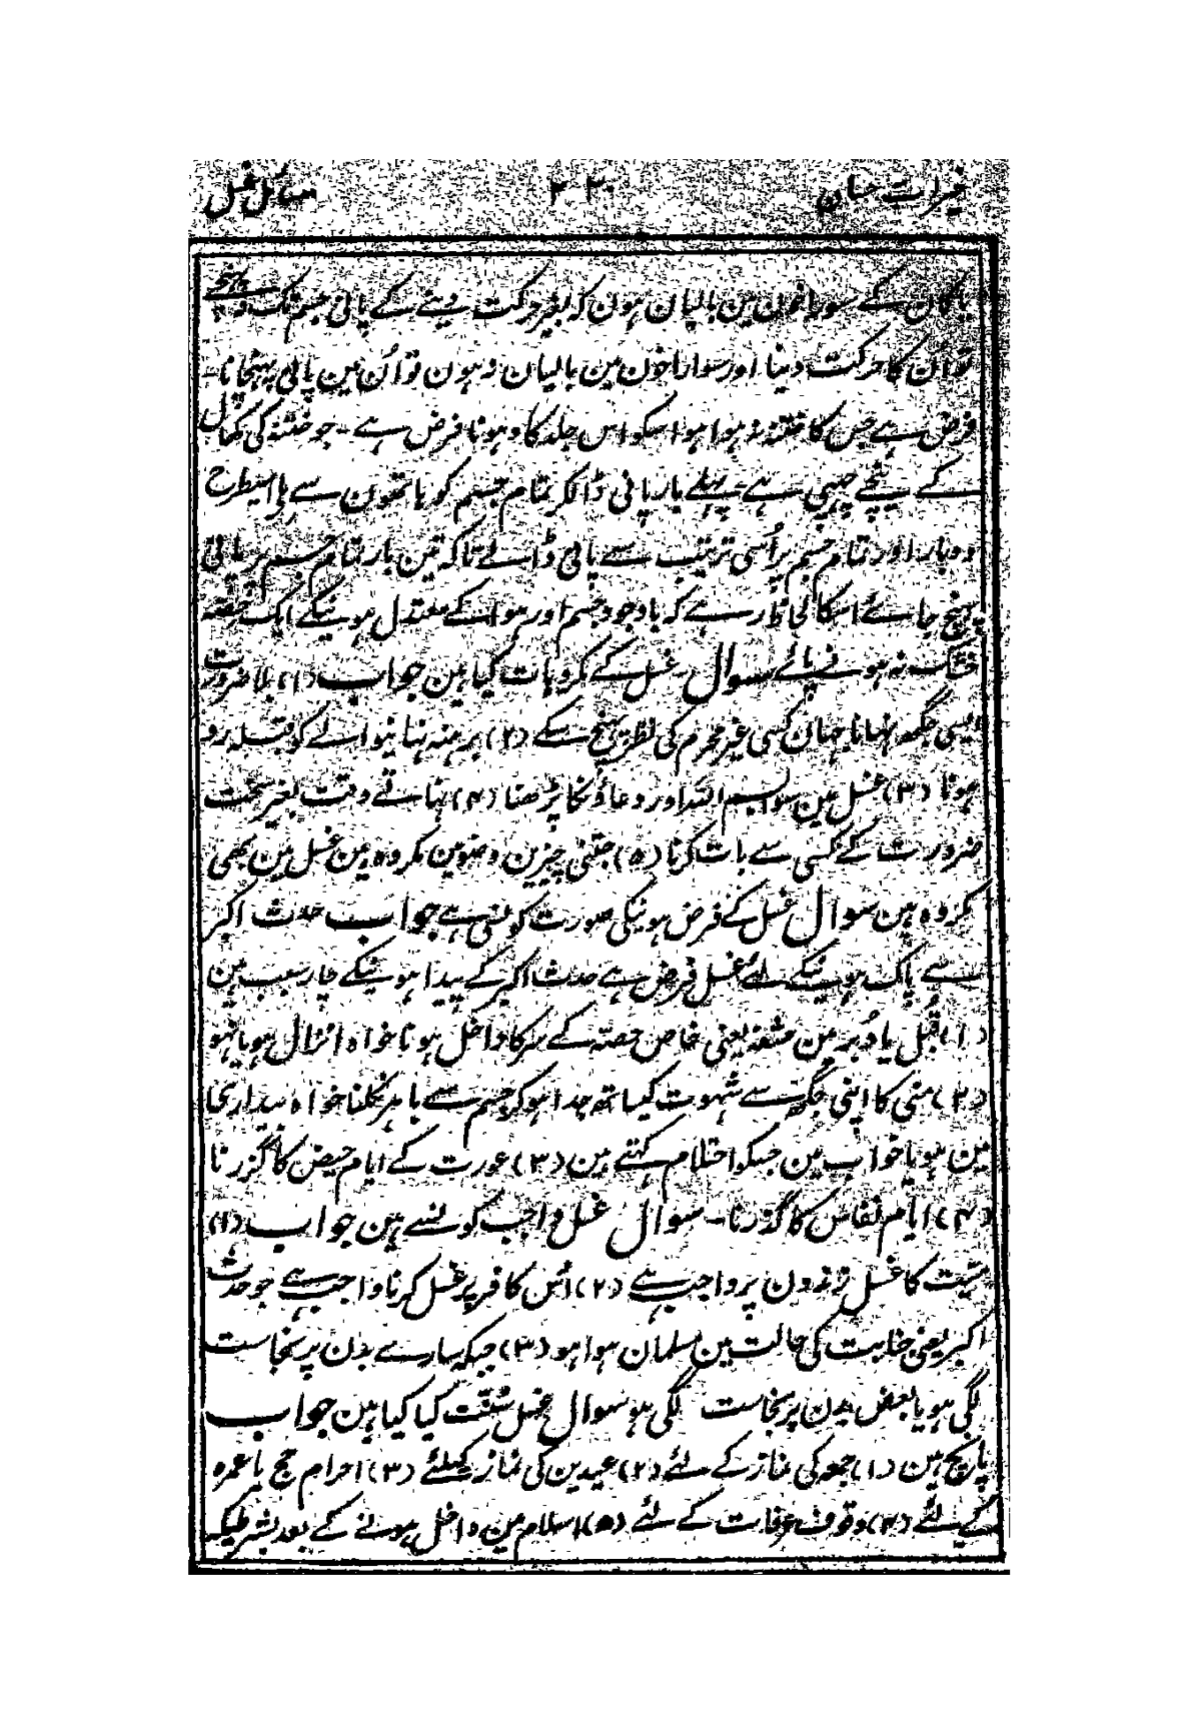 خیرات حسان ۲۲۰ مسائل غسل
یا کان کے سوراخون مین بالیان ہون کہ بغیر حرکت دینے کے پانی جسم تک نہ پہنچے
تو اُن کا حرکت دینا اور سوراخون مین بالیان نہ ہون تو اُن مین پانی پہنچانا۔
فرض ہے جس کا ختنہ نہ ہوا ہو اسکو اس جلد کا دہونا فرض ہے۔ جو ختنہ کی کھال
کے نیچے چھپی ہے۔ پہلے بار پانی ڈالکر تمام جسم کو ہاتھون سے ملے اسیطرح
دو بار اور تمام جسم پر اُسی ترتیب سے پانی ڈالے تاکہ تین بار تمام جسم پر پانی
پہنچ جائے اسکا لحاظ رہے کہ باوجود جسم اور ہوا کے معتدل ہونیکے ایک حصّہ
خشک نہ ہونے پائے سوال غسل کے مکروہات کیا ہین جواب (۱) بلا ضرورت
ایسی جگہ نہانا جہان کسی غیر محرم کی نظر پہنچ سکے (۲) برہنہ نہانیوالے کو قبلہ رو
ہونا (۳) غسل مین سوا بسم اللہ اور دعاؤنکا پڑھنا (۴) نہاتے وقت بغیر سخت
ضرورت کے کسی سے بات کرنا (۵) جتنی چیزین وضو مین مکروہ ہین غسل مین بھی
مکروہ ہین سوال غسل کے فرض ہونیکی صورت کونسی ہے جواب حدث اکبر
سے پاک ہونیکے لئے غسل فرض ہے حدث اکبر کے پیدا ہونیکے چار سبب ہین
(۱) قُبل یا دُبر مین حشفہ یعنی خاص حصّہ کے سر کا داخل ہونا خواہ انزال ہو یا نہو
(۲) منی کا اپنی جگہ سے شہوت کیساتھ جدا ہو کر جسم سے باہر نکلنا خواہ بیداری
مین ہو یا خواب مین جسکو احتلام کہتے ہین (۳) عورت کے ایام حیض کا گزرنا
(۴) ایام نفاس کا گزرنا۔ سوال غسل واجب کونسے ہین جواب (۱)
میّت کا غسل زندون پر واجب ہے (۲) اُس کافر پر غسل کرنا واجب ہے جو حدث
اکبر یعنی جنابت کی حالت مین مسلمان ہوا ہو (۳) جبکہ سارے بدن پر نجاست
لگی ہو یا بعض بدن پر نجاست لگی ہو سوال غسل سُنّت کیا کیا ہین جواب
پانچ ہین (۱) جمعہ کی نماز کے لئے (۲) عیدین کی نماز کیلئے (۳) احرام حج یا عمرہ
کے لئے (۴) وقوف عرفات کے لئے (۵) اسلام مین داخل ہونے کے بعد بشرطیکہ